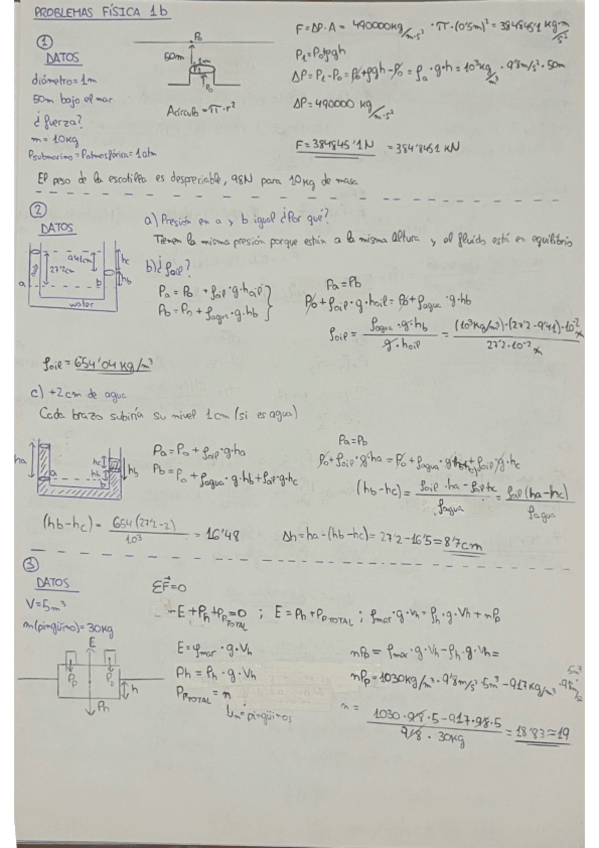 PROBLEMAS FÍSICA 1b
①
DATOS
diámetro = 1m
50m bajo el mar
¿fuerza?
m = 10kg
Psubmarino = Patmosférica = 1atm
P₀
50m
1m
P₀
Acírculo = π·r²
F = ΔP·A = 490000kg/m·s² · π·(0'5m)² = 384845'1 kg·m/s²
P₁ = P₀+ρgh
ΔP = P₁-P₀ = P₀+ρgh-P₀ = ρa·g·h = 10³kg/m³ · 9'8m/s²·50m
ΔP = 490000 kg/m·s²
F = 384845'1N = 384'8451 kN
El peso de la escotilla es despreciable, 98N para 10kg de masa
②
DATOS
a) Presión en a y b igual ¿Por qué?
Tienen la misma presión porque están a la misma altura y el fluido está en equilibrio
9'41cm
27'2cm
hc
hb
a
b
water
b) ¿ρoil?
Pa = P₀ + ρoil·g·hoil
Pb = P₀ + ρagua·g·hb
Pa = Pb
P₀ + ρoil·g·hoil = P₀ + ρagua·g·hb
ρoil = ρagua·g·hb / g·hoil = (10³kg/m³)·(27'2-9'41)·10⁻² / 27'2·10⁻²
ρoil = 654'04 kg/m³
c) +2cm de agua
Cada brazo subiría su nivel 1cm (si es agua)
ha
a
hc
hb
b
hb
Pa = P₀ + ρoil·g·ha
Pb = P₀ + ρagua·g·hb + ρoil·g·hc
Pa = Pb
(hb-hc) = ρoil·ha-ρoil·hc / ρagua = ρoil(ha-hc) / ρagua
(hb-hc) = 654(27'2-2) / 10³ = 16'48
Δh = ha-(hb-hc) = 27'2-16'5 = 8'7cm
③
DATOS
V = 5m³
m(pingüino) = 30kg
E
Pp
Pp
h
Ph
ΣF⃗ = 0
-E + Ph + PpTOTAL = 0 ; E = Ph + PpTOTAL ; ρmar·g·Vh = ρh·g·Vh + nPp
E = ρmar·g·Vh
Ph = ρh·g·Vh
PpTOTAL = n
nº pingüinos
nPp = ρmar·g·Vh - ρh·g·Vh =
nPp = 1030kg/m³·9'8m/s²·5m³ - 917kg/m³·9'8m/s²·5m³
n = 1030·9'8·5-917·9'8·5 / 9'8·30kg = 18'83 ≈ 19